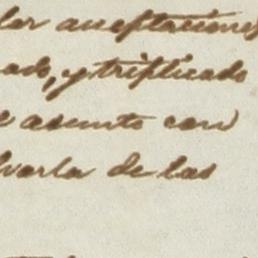 lar aceptaciones
ado, y triplicado
e asunto con
lvarla de las